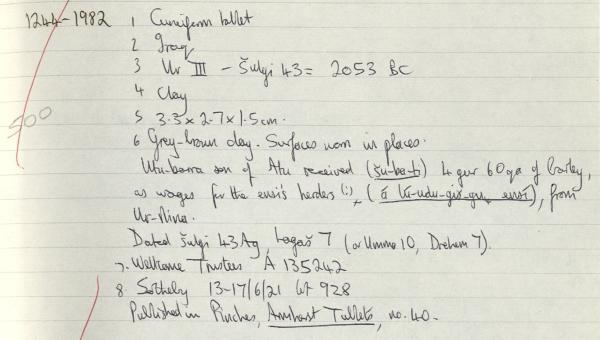 1244-1982 1 Cuneiform tablet
2 Iraq
3 Ur III - Šulgi 43 = 2053 BC
4 Clay
500
5 3.3 x 2.7 x 1.5 cm.
6 Grey-brown clay. Surfaces worn in places.
Utu-barra son of Atu received (šu-ba-ti) 4 gur 60 qa of barley,
as wages for the ensi's herders (:), (á lú-udu-gir-gu ensí), from
Ur-Nina.
Dated Šulgi 43 Ag, Lagaš 7 (or Umma 10, Drehem 7).
7. Wellcome Trustees A 135242
8 Sotheby 13-17/6/21 lot 928
Published in Pinches, Amherst Tablets, no. 40.